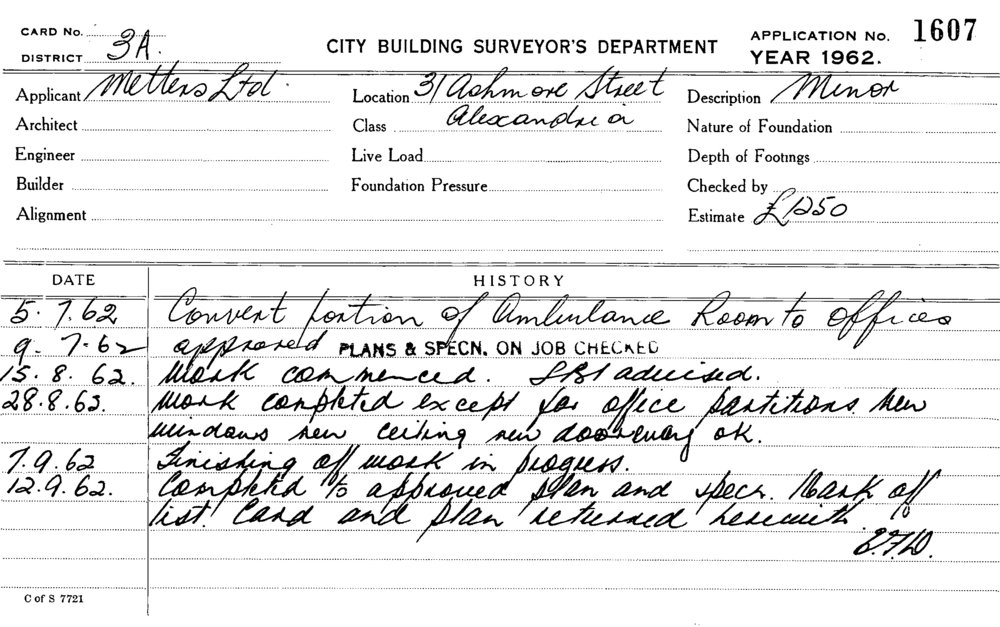 CARD No.
DISTRICT 3A.
CITY BUILDING SURVEYOR'S DEPARTMENT
APPLICATION No. 1607
YEAR 1962.
Applicant Metters Ltd.
Location 31 Ashmore Street
Alexandria
Description Minor
Architect
Class
Nature of Foundation
Engineer
Live Load
Depth of Footings
Builder
Foundation Pressure
Checked by
Alignment
Estimate £1250
DATE HISTORY
5.7.62 Convert portion of Ambulance Room to offices
9-7-62 approved PLANS & SPECN. ON JOB CHECKED
15.8.62. Work commenced. advised.
28.8.62. Work completed except for office partitions. new
windows new ceiling new doorway ok.
7.9.62 Finishing off work in progress.
12.9.62. Completed to approved plan and specn. Mark off
list. Card and plan returned herewith.
C of S 7721